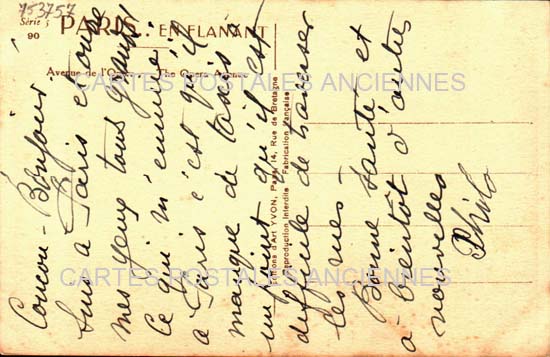 153757
Série 5
90
PARIS... EN FLANANT
Avenue de l'Opéra The Opera Avenue
CARTES POSTALES ANCIENNES
Editions d'Art YVON, Paris, 14, Rue de Bretagne
Reproduction Interdite Fabrication Française
CARTES POSTALES ANCIENNES
Coucou - Bonjour
Suis a Paris et ouvre
mes yeux tous grands
Ce qui m'ennuie
a Paris c'est qu'il
manque de taxis a
un point qu'il est
difficile de traverser
les rues -
Bonne santé et
a bientôt d'autres
nouvelles